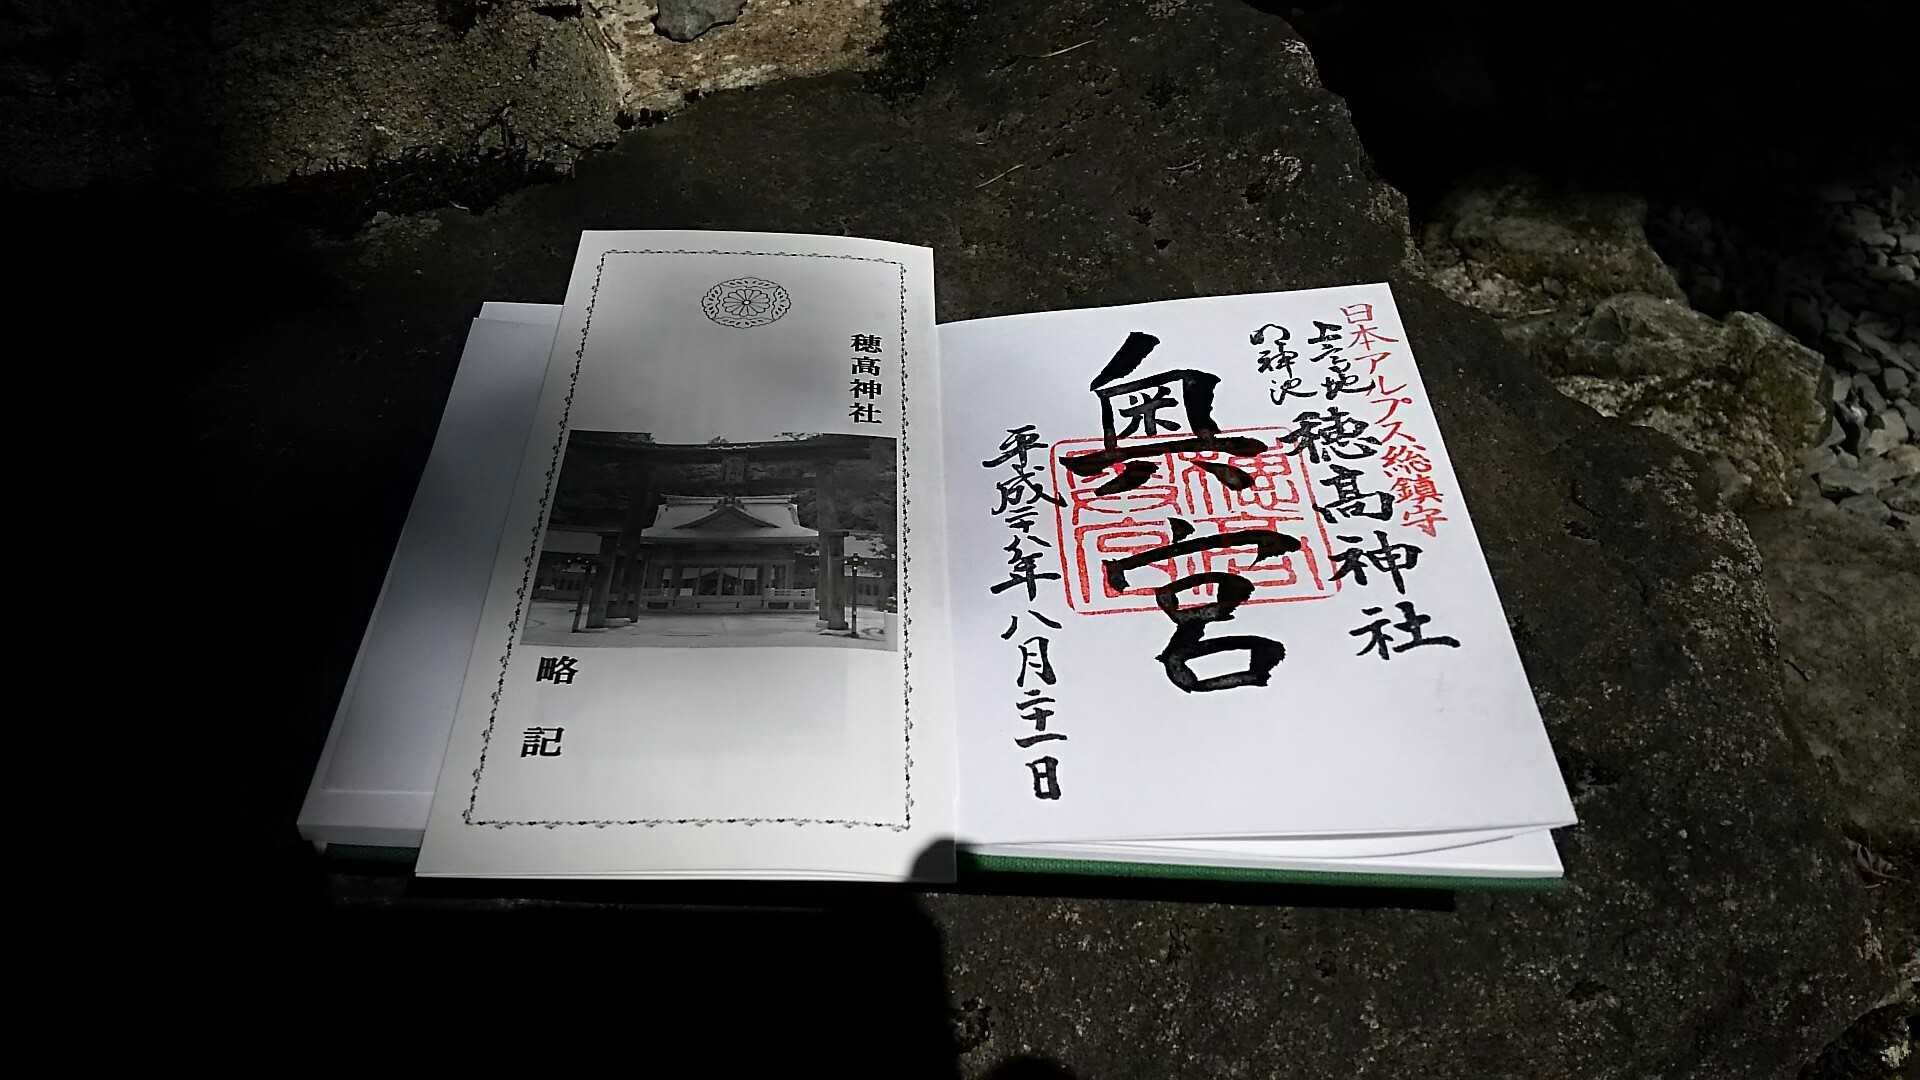 日本アルプス総鎮守
上高地
明神池
穂高神社
奥宮
穂高
奥宮
平成二十八年八月二十一日
穂高神社
略記